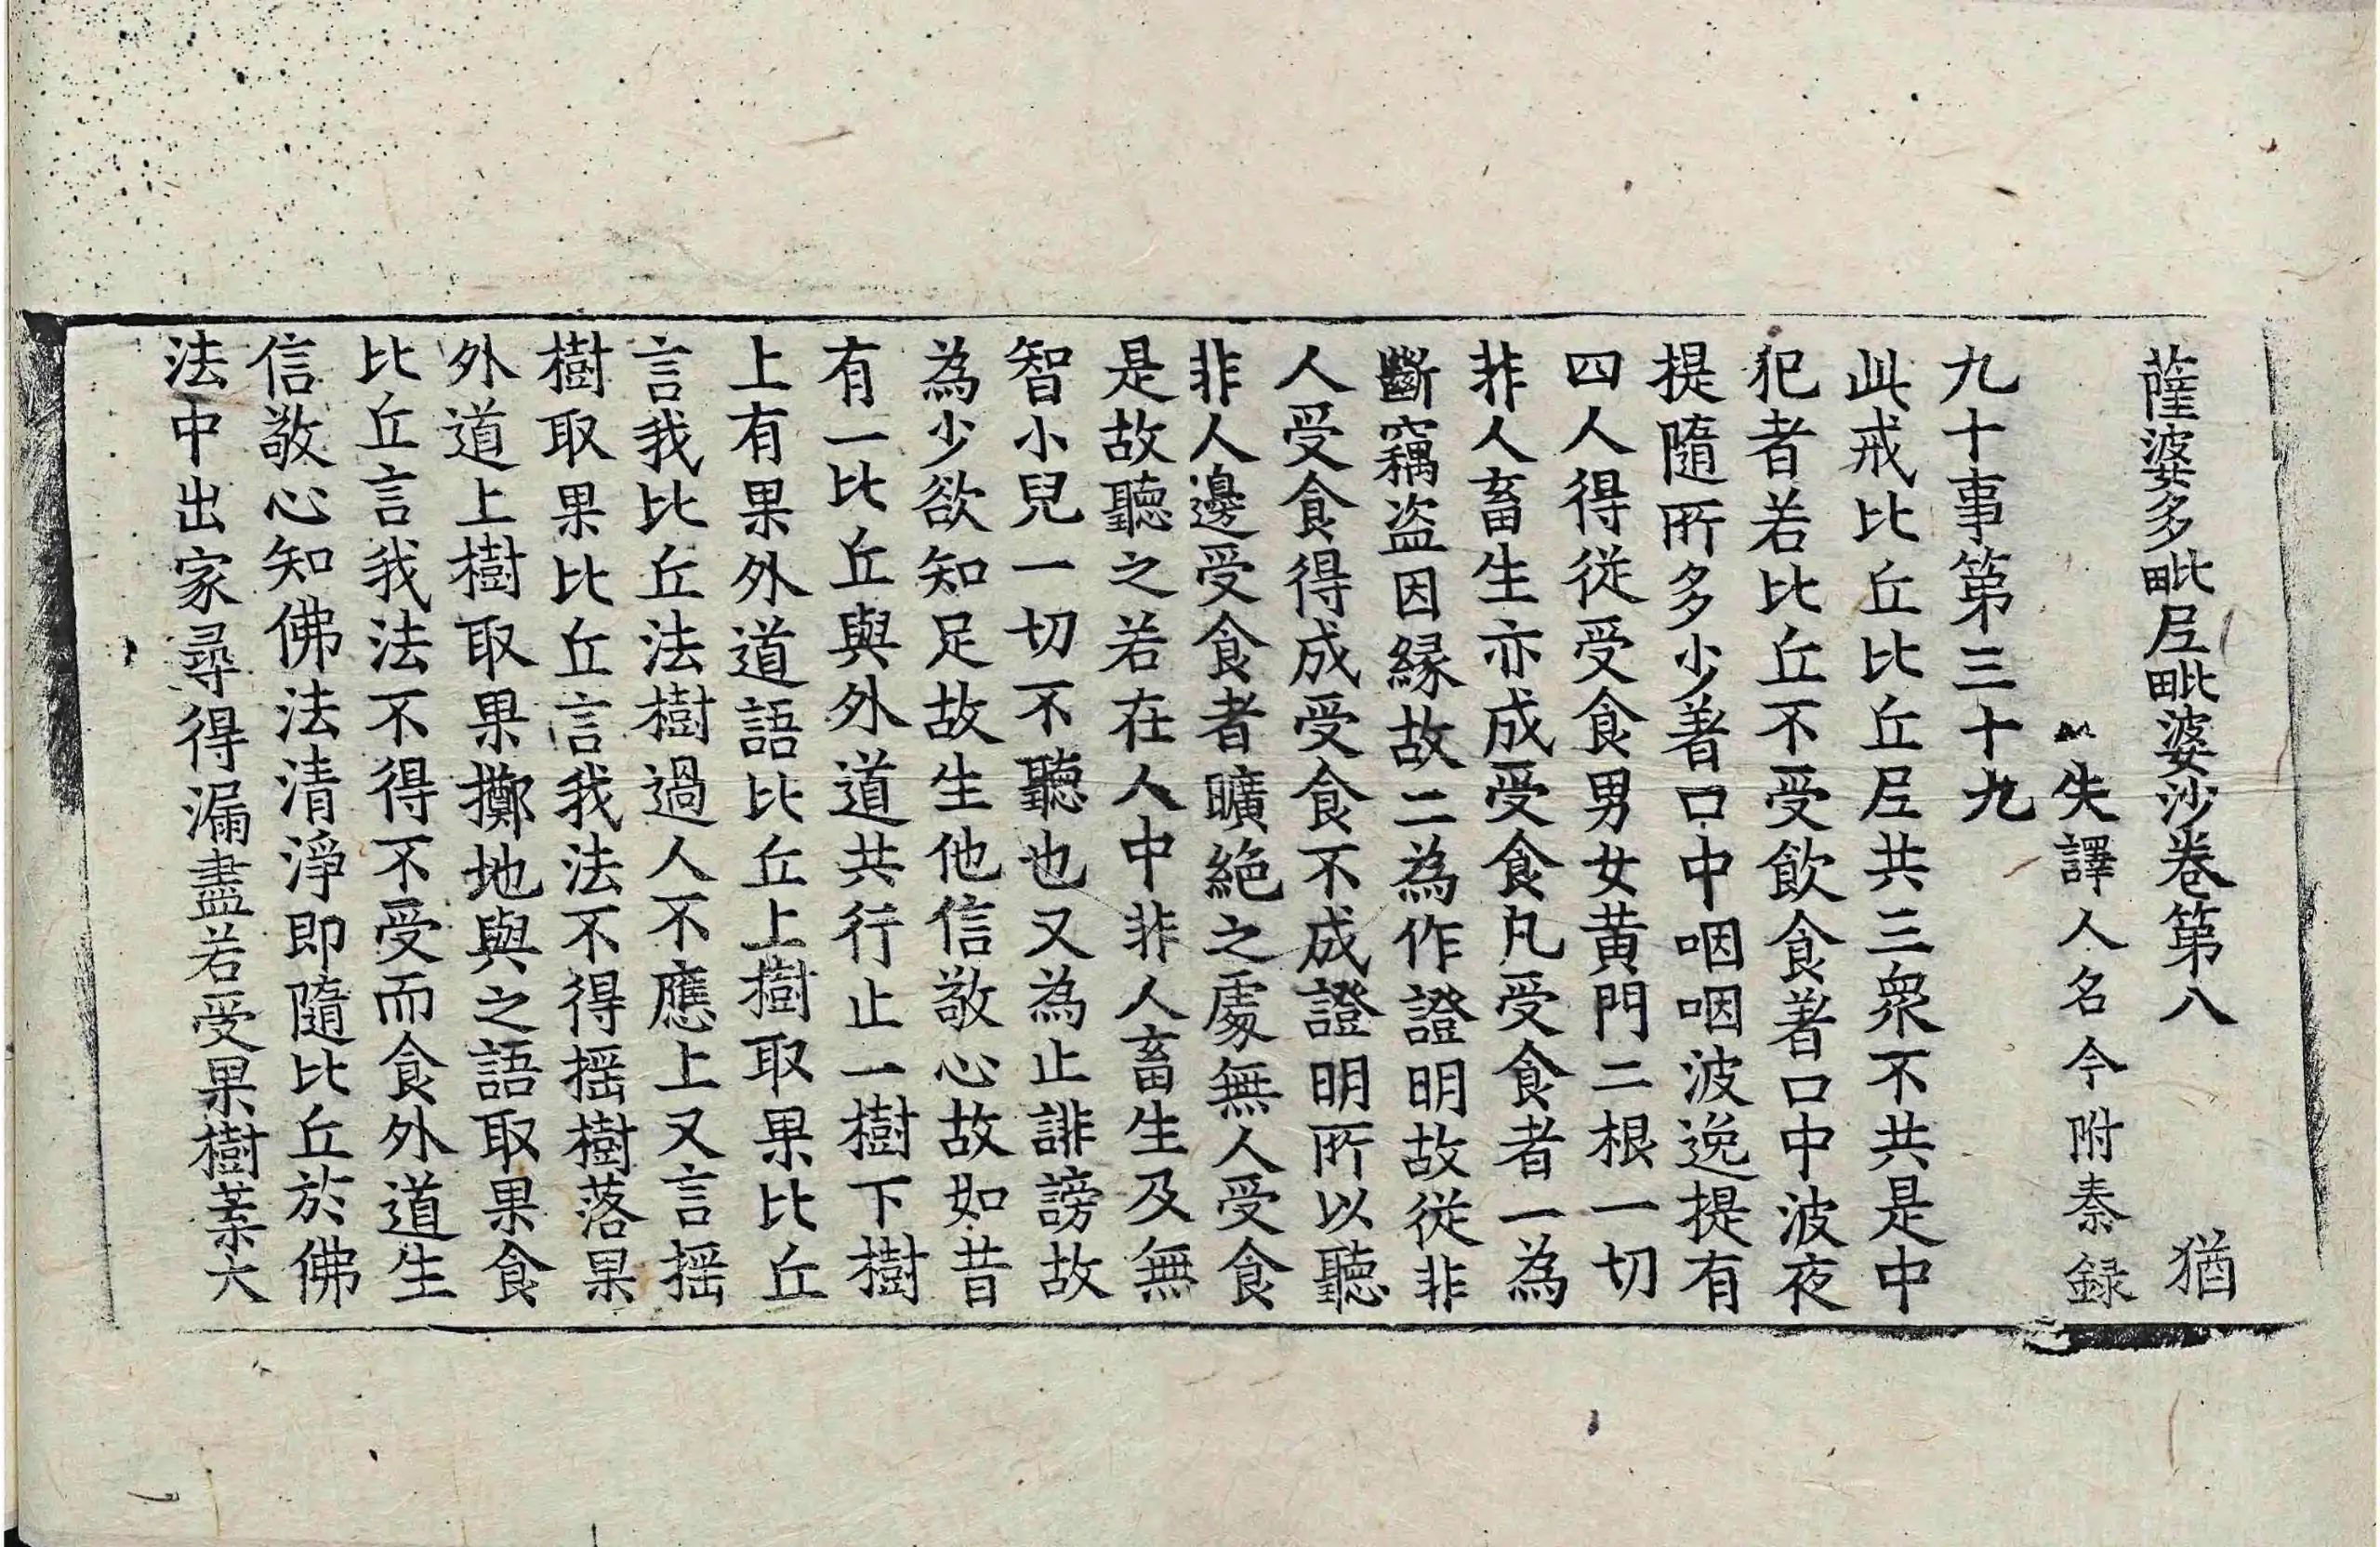 薩婆多毗尼毗婆沙卷第八 猶
失譯人名今附秦録
九十事第三十九
此戒比丘比丘尼共三衆不共是中
犯者若比丘不受飲食著口中波夜
提隨所多少著口中咽咽波逸提有
四人得從受食男女黄門二根一切
非人畜生亦成受食凡受食者一為
斷竊盗因縁故二為作證明故從非
人受食得成受食不成證明所以聽
非人邊受食者曠絶之處無人受食
是故聽之若在人中非人畜生及無
智小兒一切不聽也又為止誹謗故
為少欲知足故生他信敬心故如昔
有一比丘與外道共行止一樹下樹
上有果外道語比丘上樹取果比丘
言我比丘法樹過人不應上又言揺
樹取果比丘言我法不得揺樹落果
外道上樹取果擲地與之語取果食
比丘言我法不得不受而食外道生
信敬心知佛法清淨即隨比丘於佛
法中出家尋得漏盡若受果樹葉大